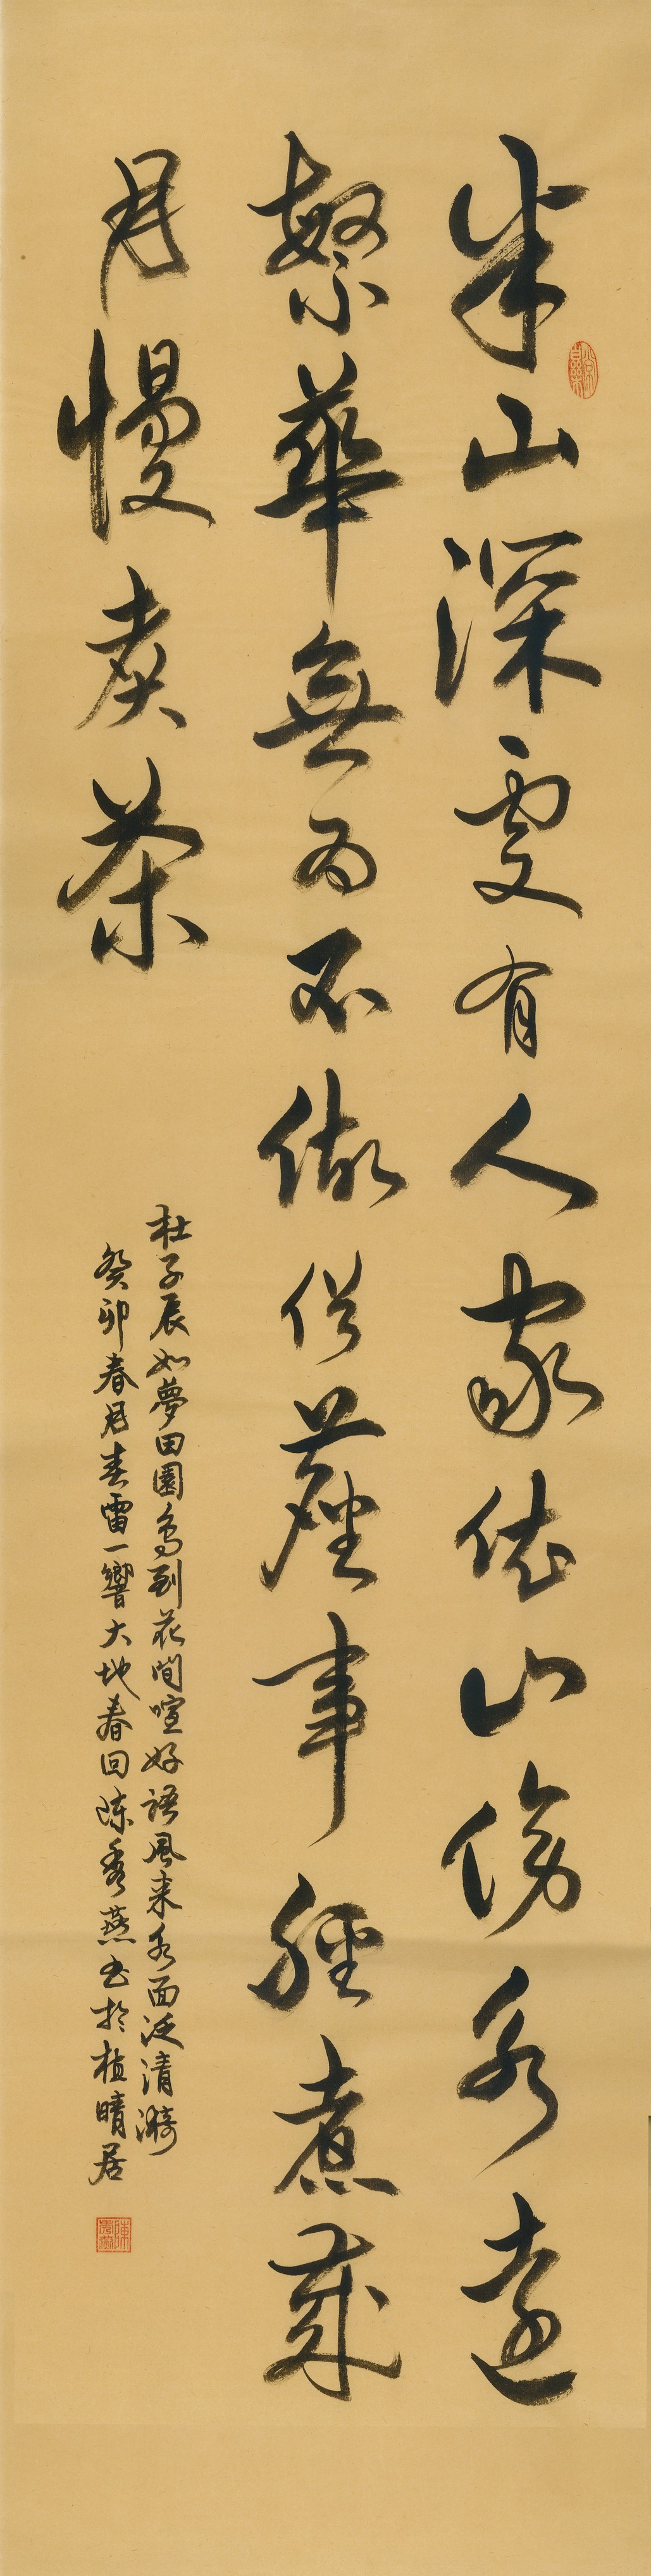 半山深處有人家依山傍水遠
繁華無為不做俗塵事輕煮歲
月慢煮茶
杜子辰如夢田園鳥到花間喧好語風來水面泛清漪
癸卯春月春雷一響大地春回陳秀燕書於植晴居